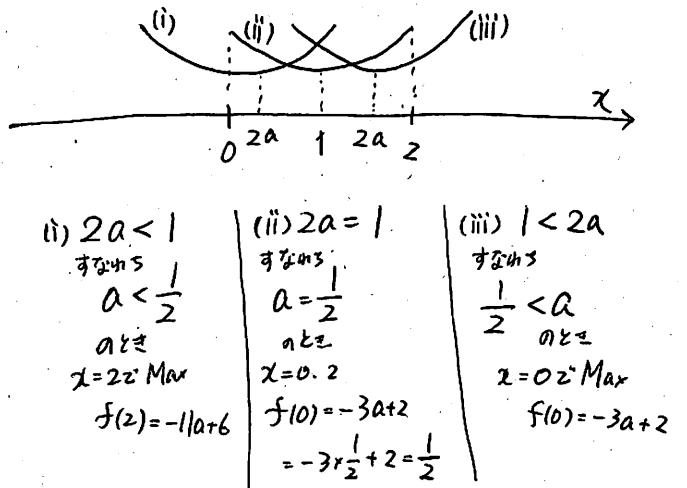 (i) (ii) (iii)
x
0 2a 1 2a 2
(i) 2a < 1
すなわち
a < 1/2
のとき
x=2で Max
f(2)=-11a+6
(ii) 2a = 1
すなわち
a = 1/2
のとき
x=0.2
f(0)=-3a+2
=-3×1/2+2=1/2
(iii) 1 < 2a
すなわち
1/2 < a
のとき
x=0で Max
f(0)=-3a+2